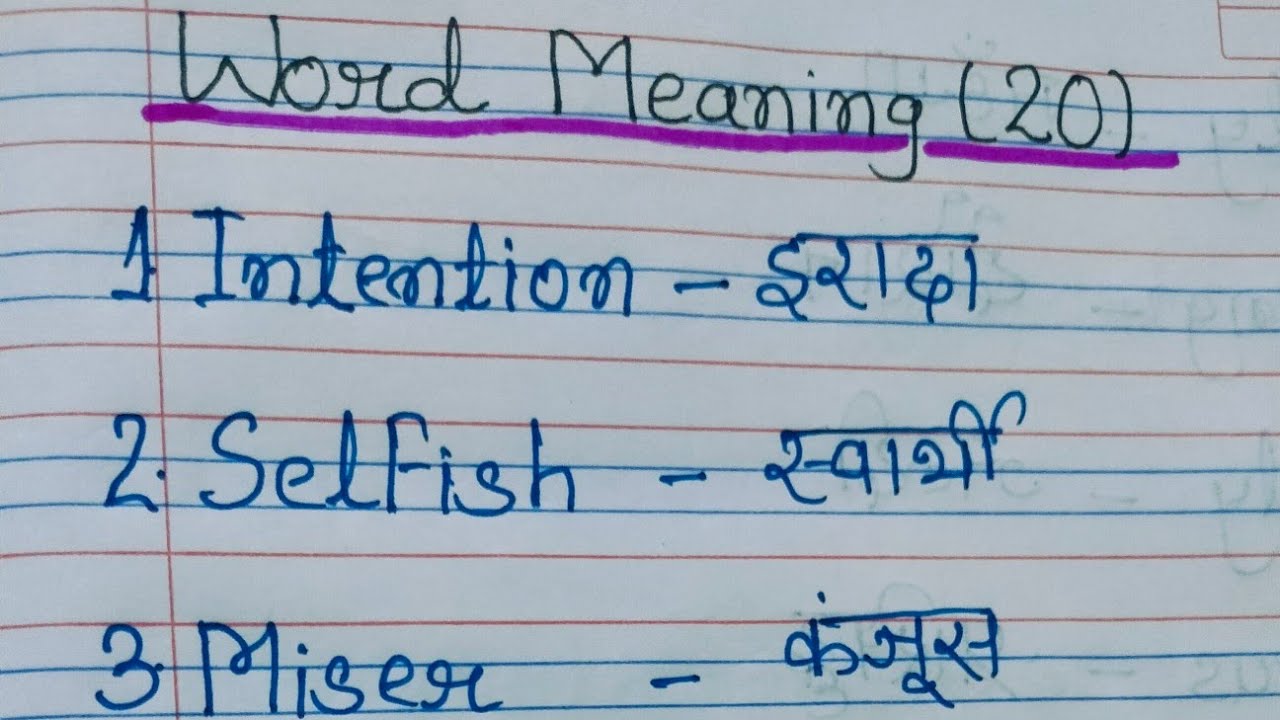 Word Meaning (20)
1. Intention - इरादा
2. Selfish - स्वार्थी
3. Miser - कंजूस